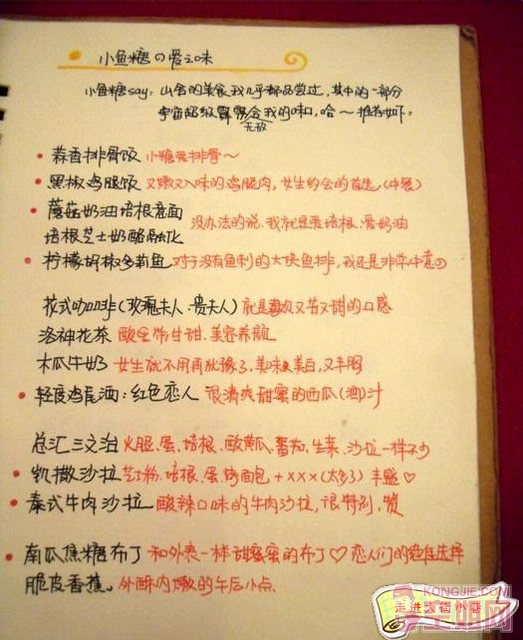 小鱼糖の爱之味
小鱼糖say: 山舍的美食我几乎都品尝过,其中的一部分
宇宙超级霹雳无敌合我的味口,哈~ 推荐如下:
蒜香排骨饭 小糖爱排骨~
黑椒鸡腿饭 又嫩又入味的鸡腿肉,女生约会的首选(中餐)
蘑菇奶油培根意面
没办法的说.我就是爱培根、爱奶油
培根芝士奶酪融化
柠檬胡椒多莉鱼 对于没有鱼刺的大块鱼排,我还是非常中意的
花式咖啡(玫瑰夫人·贵夫人) 就是喜欢又苦又甜的口感
洛神花茶 酸里带甘甜.美容养颜
木瓜牛奶 女生就不用再犹豫了,美味美白,又丰胸
轻度鸡尾酒:红色恋人 很清爽甜蜜的西瓜(酒)汁
总汇三文治 火腿、蛋、培根、酸黄瓜、番茄、生菜、沙拉一样不少
凯撒沙拉 芝士粉、培根、蛋、烤面包+xxx(太多了)丰盛♡
泰式牛肉沙拉 酸辣口味的牛肉沙拉,很特别,赞
南瓜焦糖布丁 和外表一样甜蜜蜜的布丁♡恋人们的绝佳选择
脆皮香蕉. 外酥内嫩的午后小点.
KONGJIE.COM
空姐网